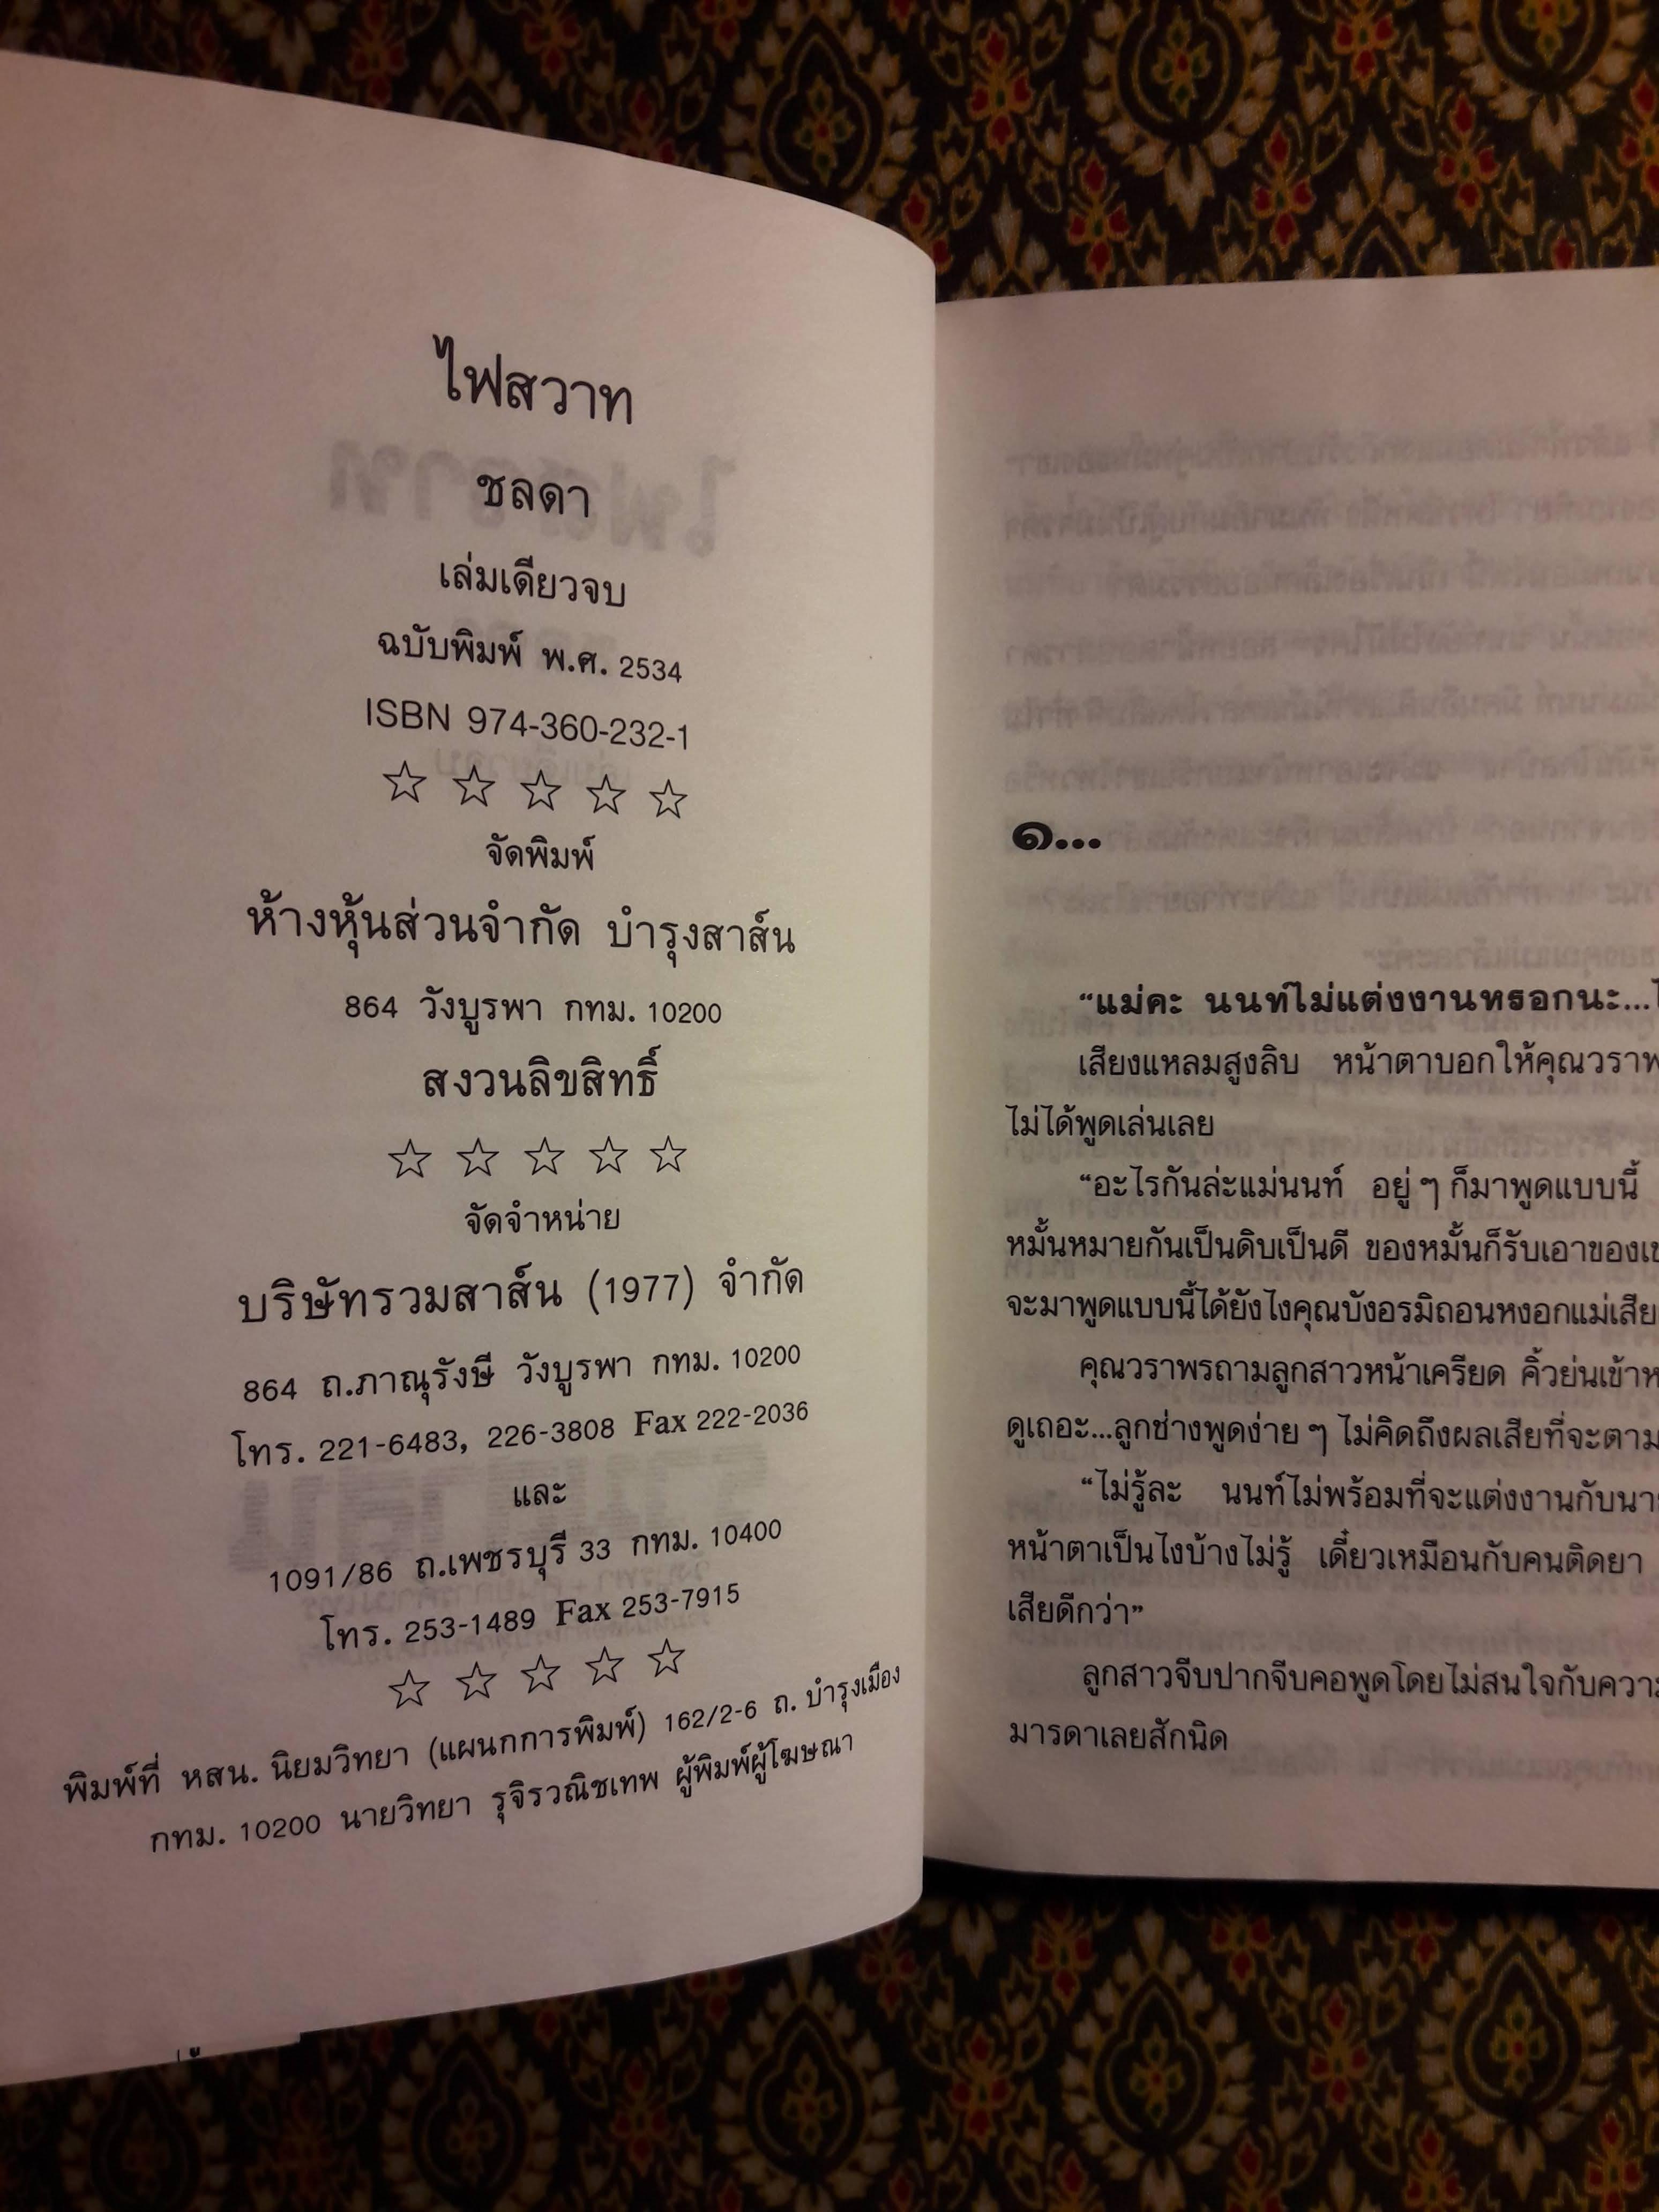 ไฟสวาท
ชลดา
เล่มเดียวจบ
ฉบับพิมพ์ พ.ศ. 2534
ISBN 974-360-232-1
☆ ☆ ☆ ☆ ☆
จัดพิมพ์
ห้างหุ้นส่วนจำกัด บำรุงสาส์น
864 วังบูรพา กทม. 10200
สงวนลิขสิทธิ์
☆ ☆ ☆ ☆ ☆
จัดจำหน่าย
บริษัทรวมสาส์น (1977) จำกัด
864 ถ.ภาณุรังษี วังบูรพา กทม. 10200
โทร. 221-6483, 226-3808 Fax 222-2036
และ
1091/86 ถ.เพชรบุรี 33 กทม. 10400
โทร. 253-1489 Fax 253-7915
☆ ☆ ☆ ☆ ☆
พิมพ์ที่ หสน. นิยมวิทยา (แผนกการพิมพ์) 162/2-6 ถ. บำรุงเมือง
กทม. 10200 นายวิทยา รุจิรวณิชเทพ ผู้พิมพ์ผู้โฆษณา
๑...
“แม่คะ นนท์ไม่แต่งงานหรอกนะ...
เสียงแหลมสูงลิบ หน้าตาบอกให้คุณวราพ
ไม่ได้พูดเล่นเลย
“อะไรกันล่ะแม่นนท์ อยู่ ๆ ก็มาพูดแบบนี้
หมั้นหมายกันเป็นดิบเป็นดี ของหมั้นก็รับเอาของเข
จะมาพูดแบบนี้ได้ยังไงคุณบังอรมิถอนหงอกแม่เสีย
คุณวราพรถามลูกสาวหน้าเครียด คิ้วย่นเข้าห
ดูเถอะ...ลูกช่างพูดง่าย ๆ ไม่คิดถึงผลเสียที่จะตาม
“ไม่รู้ละ นนท์ไม่พร้อมที่จะแต่งงานกับนา
หน้าตาเป็นไงบ้างไม่รู้ เดี๋ยวเหมือนกับคนติดยา
เสียดีกว่า”
ลูกสาวจีบปากจีบคอพูดโดยไม่สนใจกับควา
มารดาเลยสักนิด